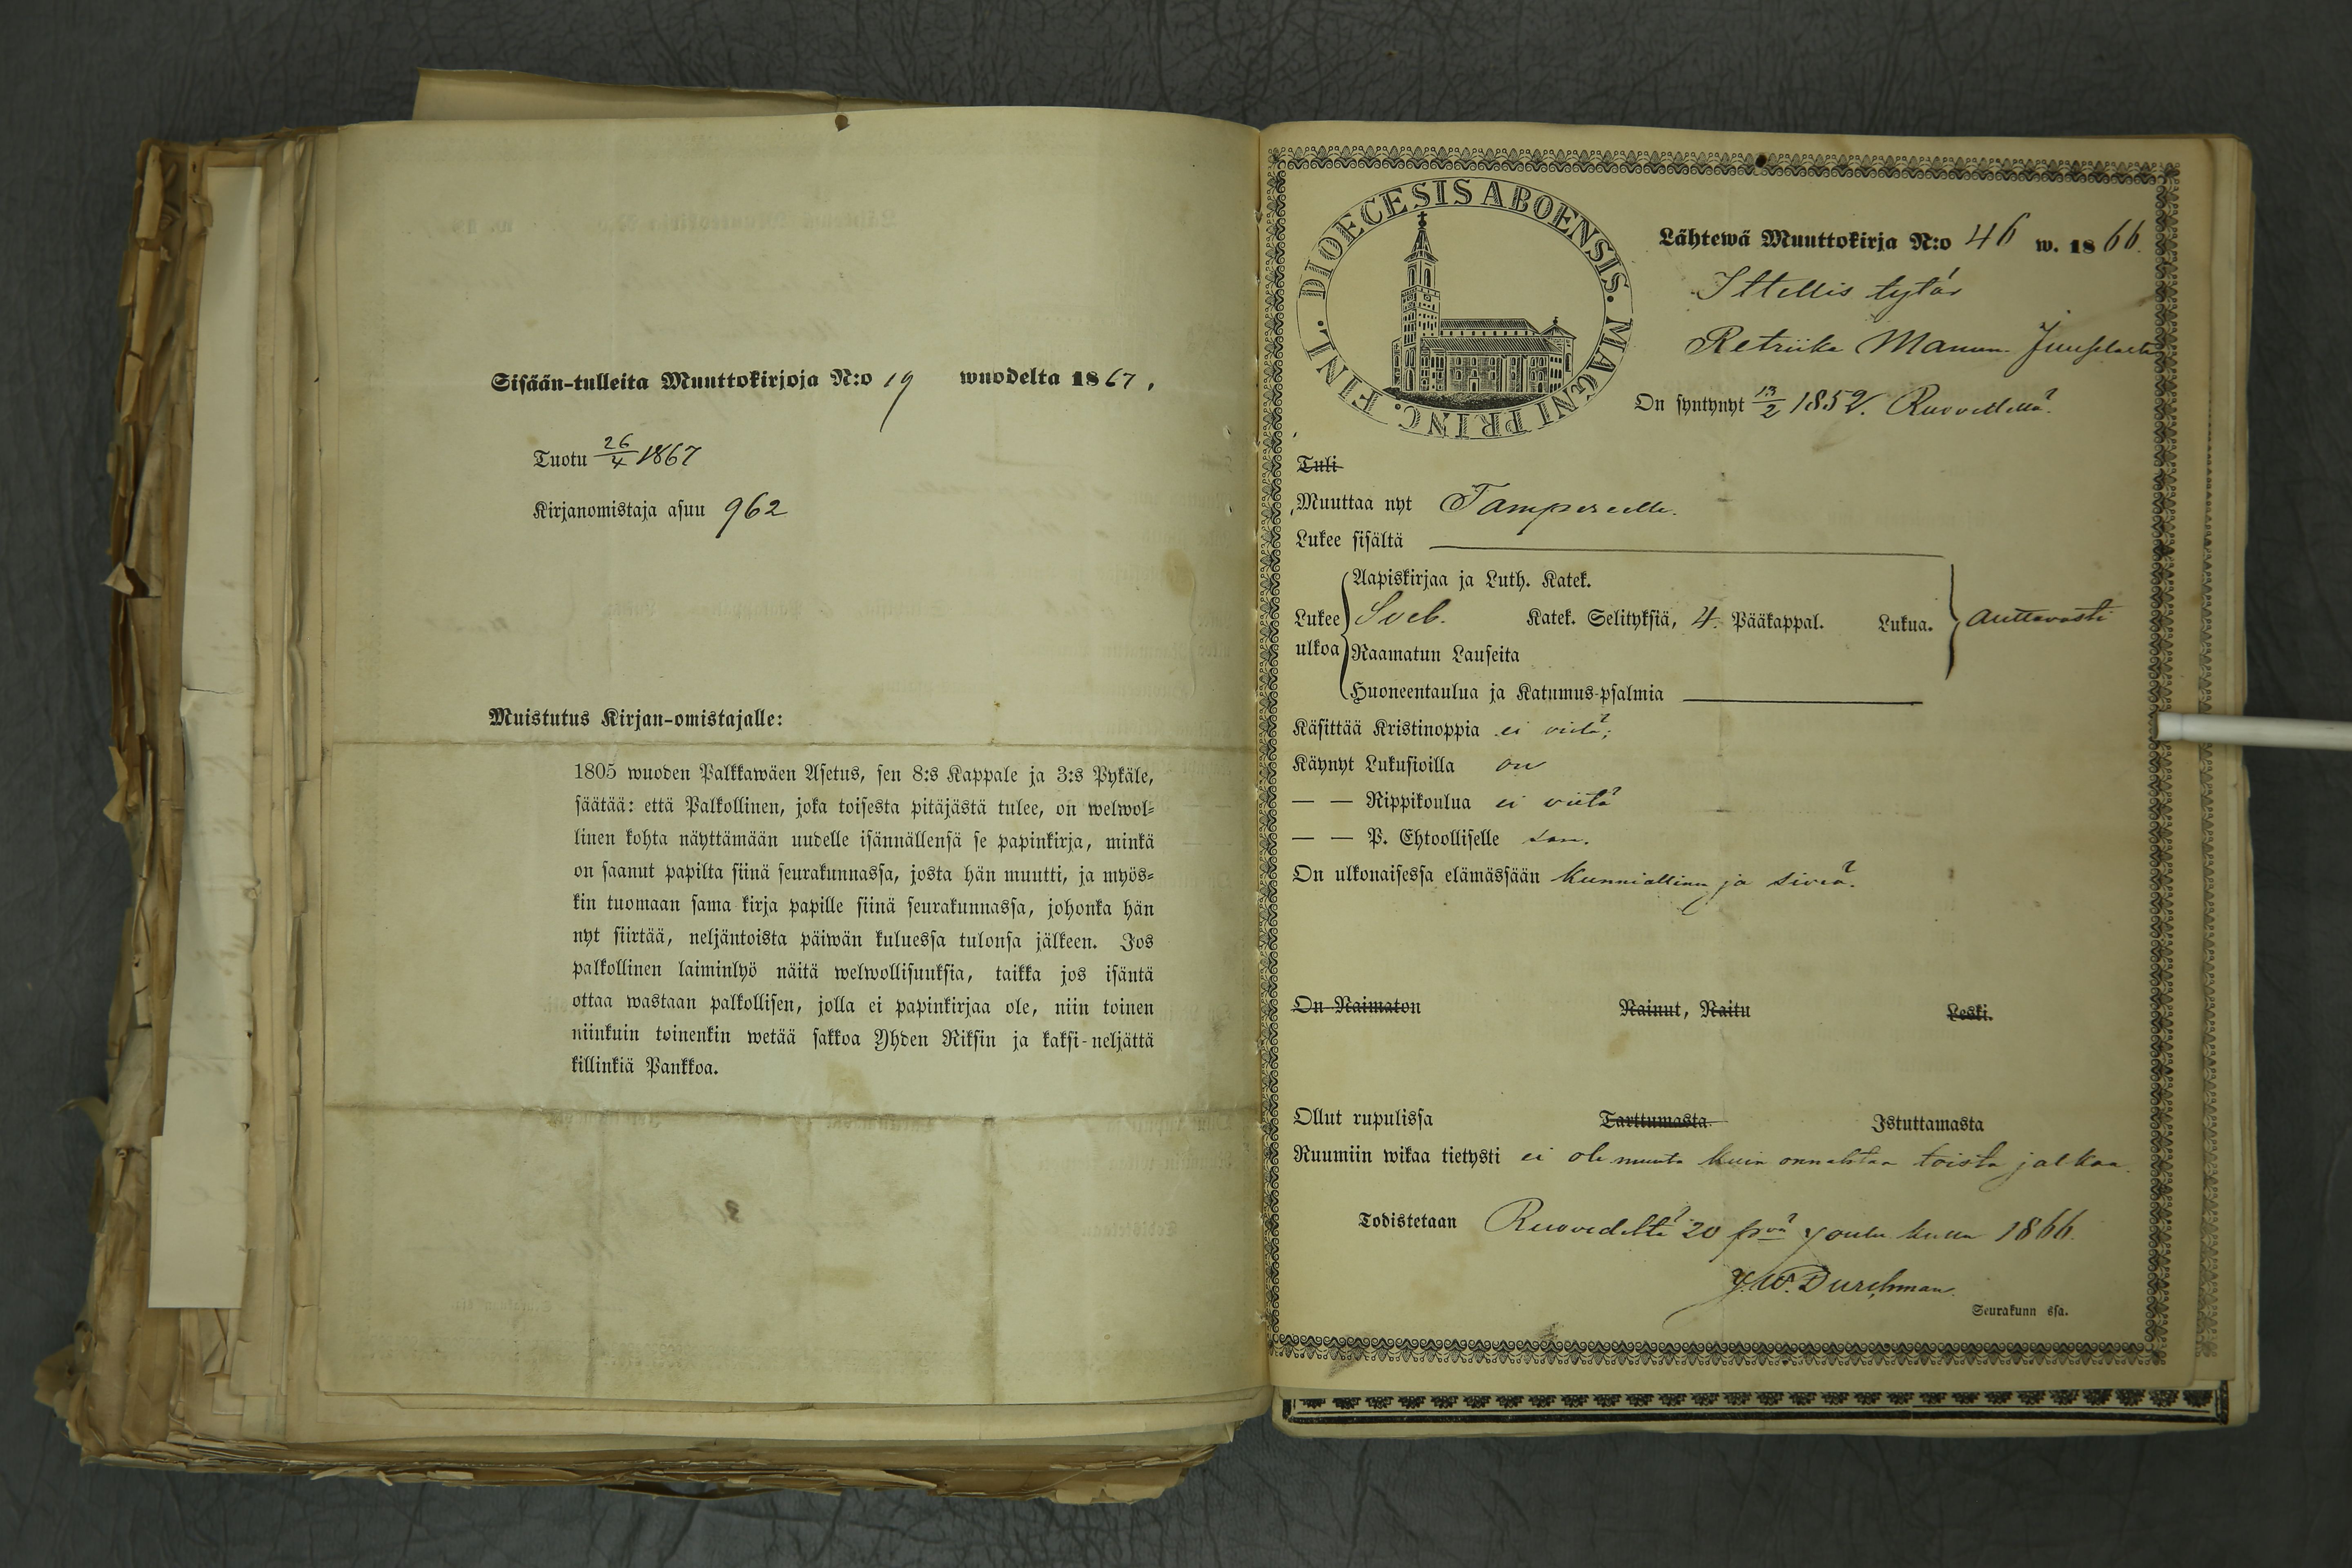 Sisään-tulleita Muuttokirjoja N:o 19 wuodelta 1867,
Tuotu 26/4 1867
Kirjanomistaja asuu 962
Muistutus Kirjan-omistajalle:
1805 wuoden Palkkawäen Asetus, sen 8:s Kappale ja 3:s Pykäle,
säätää: että Palkollinen, joka toisesta pitäjästä tulee, on welwol-
linen kohta näyttämään uudelle isännällensä se papinkirja, minkä
on saanut papilta siinä seurakunnassa, josta hän muutti, ja myös-
kin tuomaan sama kirja papille siinä seurakunnassa, johonka hän
nyt siirtää, neljäntoista päiwän kuluessa tulonsa jälkeen. Jos
palkollinen laiminlyö näitä welwollisuuksia, taikka jos isäntä
ottaa wastaan palkollisen, jolla ei papinkirjaa ole, niin toinen
niinkuin toinenkin wetää sakkoa Yhden Riksin ja kaksi-neljättä
killinkiä Pankkoa.
DIOECESIS ABOENSIS. MAGNI PRINC. FINL.
Lähtewä Muuttokirja N:o 46 w. 1866.
Ittellis tytär
Retriika Manun
On syntynyt 13/2 1852. Ruovedellä.
Tuli
Muuttaa nyt Tampereelle.
Lukee sisältä
Aapiskirjaa ja Luth. Katek.
Lukee ulkoa Sveb. Katek. Selityksiä, 4. Pääkappal. Lukua. auttavasti
Raamatun Lauseita
Huoneentaulua ja Katumus-psalmia
Käsittää Kristinoppia ei vielä;
Käynyt Lukusioilla on
— — Rippikoulua ei vielä
— — P. Ehtoolliselle sam.
On ulkonaisessa elämässään kunniallinen ja siviä.
On Naimaton Nainut, Naitu Leski.
Ollut rupulissa Tarttumasta Istuttamasta
Ruumiin wikaa tietysti ei ole muuta kuin onnahtaa toista jalkaa.
Todistetaan Ruovedeltä 20 p:vä Joulu kuun 1866.
J. W. Durchman.
Seurakunn ssa.